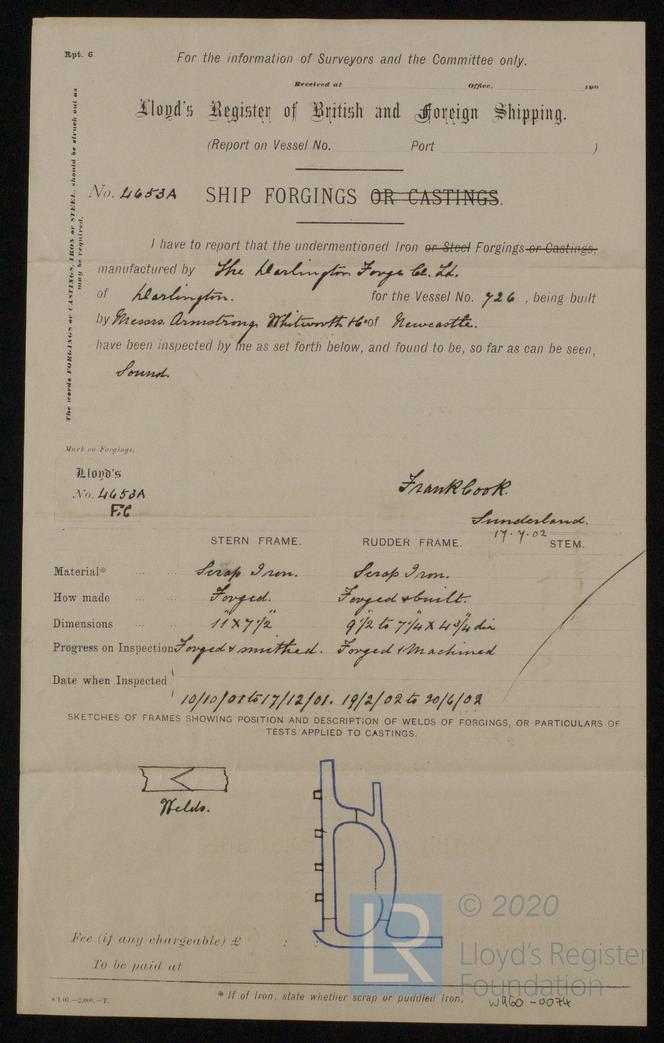 Rpt. 6.
For the information of Surveyors and the Committee only.
Received at Office, 190
Lloyd's Register of British and Foreign Shipping.
(Report on Vessel No. Port )
No. 4653A SHIP FORGINGS OR CASTINGS.
The words FORGINGS or CASTINGS, IRON or STEEL, should be struck out as may be required.
I have to report that the undermentioned Iron or Steel Forgings or Castings,
manufactured by The Darlington Forge Co. Ld.
of Darlington. for the Vessel No. 726, being built
by Messrs. Armstrong, Whitworth & Co of Newcastle.
have been inspected by me as set forth below, and found to be, so far as can be seen,
Sound.
Mark on Forgings.
Lloyd's
No. 4653A
F.C
Frank Cook.
Sunderland.
17.7.02
STERN FRAME. RUDDER FRAME. STEM.
Material* ... ... Scrap Iron. Scrap Iron.
How made ... ... Forged. Forged & built.
Dimensions ... ... 11" x 7 1/2" 9 1/2 to 7 1/4 x 4 3/4 dia
Progress on Inspection Forged & smithed. Forged & Machined
Date when Inspected 10/10/01 to 17/12/01. 19/2/02 to 20/6/02
SKETCHES OF FRAMES SHOWING POSITION AND DESCRIPTION OF WELDS OF FORGINGS, OR PARTICULARS OF
TESTS APPLIED TO CASTINGS.
Welds.
Fee (if any chargeable) £ :
To be paid at
* If of Iron, state whether scrap or puddled iron.
LR
© 2020
Lloyd's Register
Foundation
W960-0074